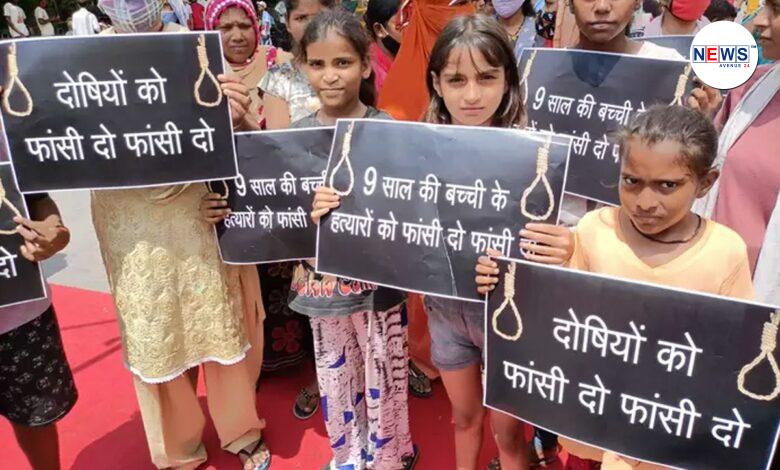 NEWS
AVENUE 24
दोषियों को
फांसी दो फांसी दो
9 साल की बच्ची
हत्यारों को फांसी
9 साल की बच्ची के
हत्यारों को फांसी दो फांसी
9 साल की बच्ची के
को फांसी दो फांसी
दो
दोषियों को
फांसी दो फांसी दो